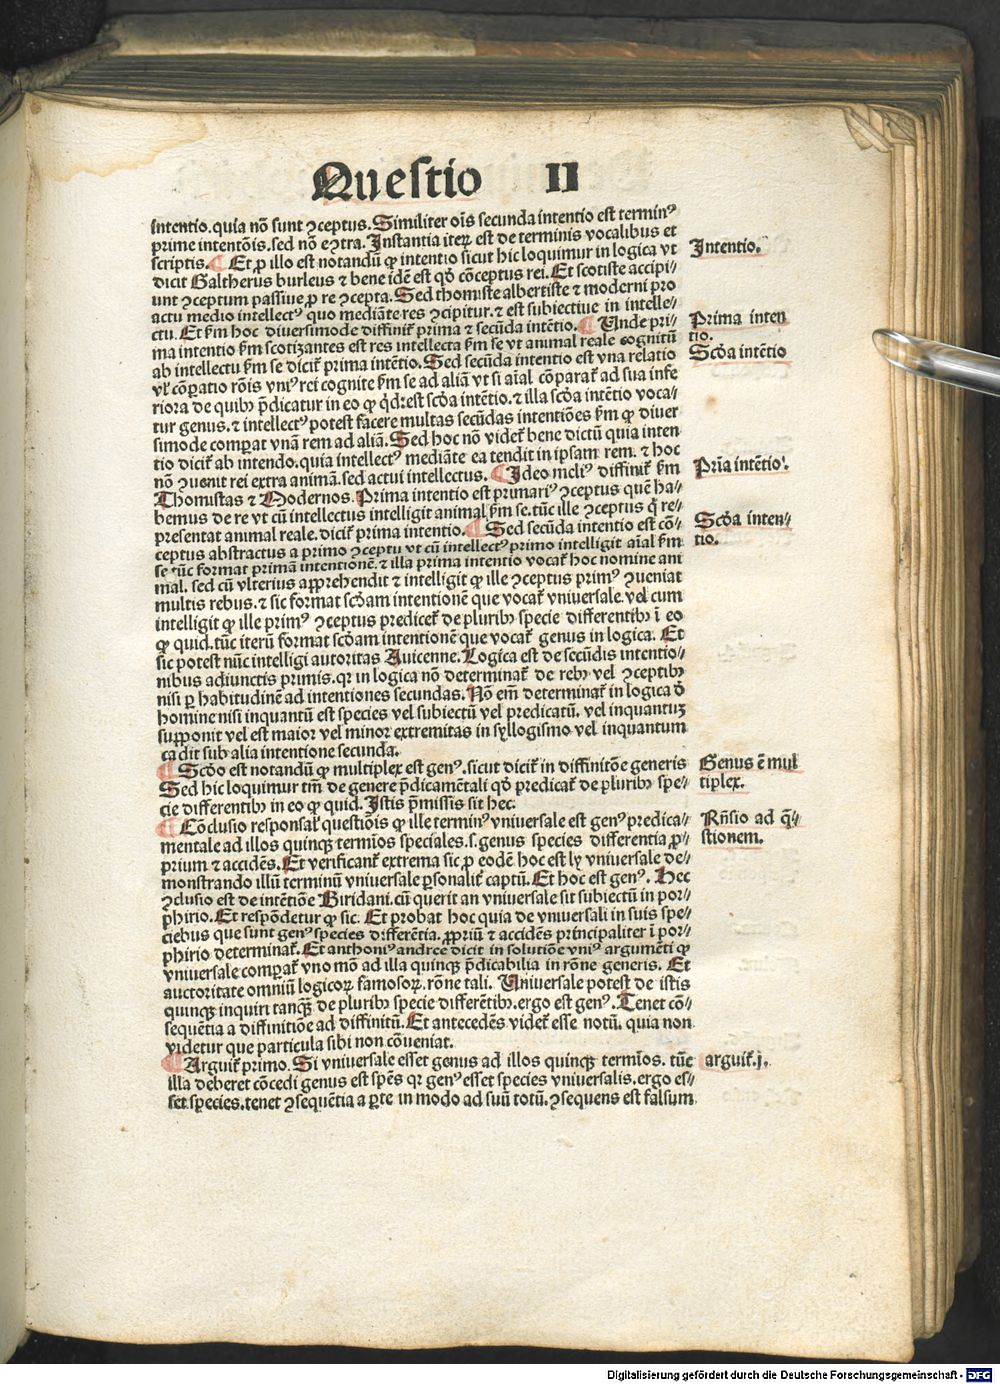 Questio II
intentio. quia nõ sunt ꝯceptus. Similiter oĩs secunda intentio est terminꝰ
prime intentõis. sed nõ eꝯtra. Instantia iteꝝ est de terminis vocalibus et
scriptis. ¶ Et ꝓ illo est notandũ ꝙ intentio sicut hic loquimur in logica vt
Intentio.
dicit Galtherus burleus ⁊ bene idẽ est qđ cõceptus rei. Et scotiste accipi⸗
unt ꝯceptum passiue ꝓ re ꝯcepta. Sed thomiste albertiste ⁊ moderni pro
actu medio intellectꝰ quo mediãte res ꝯcipitur. ⁊ est subiectiue in intelle⸗
ctu. Et ẜm hoc diuersimode diffiniť prima ⁊ secũda intẽtio. ¶ Unde pri⸗
Prima inten
tio.
ma intentio ẜm scotizantes est res intellecta ẜm se vt animal reale cognitũ
Scđa intẽtio
ab intellectu ẜm se diciť prima intẽtio. Sed secũda intentio est vna relatio
vľ cõꝑatio rõis vniꝰ rei cognite ẜm se ad aliã vt si aĩal cõparať ad sua infe
riora de quibꝫ p̃dicatur in eo ꝙ qđ est scđa intẽtio. ⁊ illa scđa intẽtio voca⸗
tur genus. ⁊ intellectꝰ potest facere multas secũdas intentiões ẜm ꝙ diuer
simode comꝑat vnã rem ad aliã. Sed hoc nõ videť bene dictũ quia inten
tio diciť ab intendo. quia intellectꝰ mediãte ea tendit in ipsam rem. ⁊ hoc
nõ ꝯuenit rei extra animã. sed actui intellectus. ¶ Ideo meliꝰ diffiniť ẜm
Prĩa intẽtio.
Thomistas ⁊ Modernos. Prima intentio est primariꝰ ꝯceptus quẽ ha⸗
bemus de re vt cũ intellectus intelligit animal ẜm se. tũc ille ꝯceptus q̃ re⸗
presentat animal reale. diciť prima intentio. ¶ Sed secũda intentio est cõ⸗
Scđa inten⸗
tio.
ceptus abstractus a primo ꝯceptu vt cũ intellectꝰ primo intelligit aĩal ẜm
se tũc format primã intentionẽ. ⁊ illa prima intentio vocať hoc nomine ani
mal. sed cũ vlterius apprehendit ⁊ intelligit ꝙ ille ꝯceptus primꝰ ꝯueniat
multis rebus. ⁊ sic format scđam intentionẽ que vocať vniuersale. vel cum
intelligit ꝙ ille primꝰ ꝯceptus prediceť de pluribꝫ specie differentibꝫ ĩ eo
ꝙ quid. tũc iterũ format scđam intentionẽ que vocať genus in logica. Et
sic potest nũc intelligi autoritas Auicenne. Logica est de secũdis intentio⸗
nibus adiunctis primis. qꝛ in logica nõ determinať de rebꝫ vel ꝯceptibꝫ
nisi ꝑ habitudinẽ ad intentiones secundas. Nõ em̃ determinať in logica đ
homine nisi inquantũ est species vel subiectũ vel predicatũ. vel inquantuꝫ
supponit vel est maior vel minor extremitas in syllogismo vel inquantum
cadit sub alia intentione secunda.
¶ Scđo est notandũ ꝙ multiplex est genꝰ. sicut diciť in diffinitõe generis
Genus ẽ mul
tiplex.
Sed hic loquimur tm̃ de genere p̃dicamẽtali qđ predicať de pluribꝫ spe⸗
cie differentibꝫ in eo ꝙ quid. Istis p̃missis sit hec.
¶ Cõclusio responsaľ questiõis ꝙ ille terminꝰ vniuersale est genꝰ predica⸗
Rñsio ad q̃⸗
stionem.
mentale ad illos quinqꝫ termĩos speciales. s. genus species differentia ꝓ⸗
prium ⁊ accidẽs. Et verificanť extrema sic ꝓ eodẽ hoc est ly vniuersale de⸗
monstrando illũ terminũ vniuersale ꝑsonaliť captũ. Et hoc est genꝰ. Hec
ꝯclusio est de intẽtiõe Biridani. cũ querit an vniuersale sit subiectũ in por⸗
phirio. Et respõdetur ꝙ sic. Et probat hoc quia de vniuersali in suis spe⸗
ciebus que sunt genꝰ species differẽtia. ꝓpriũ ⁊ accidẽs principaliter ĩ por⸗
phirio determinať. Et anthoniꝰ andree dicit in solutiõe vniꝰ argumẽti ꝙ
vniuersale comꝑať vno mõ ad illa quinqꝫ p̃dicabilia in rõne generis. Et
auctoritate omniũ logicoꝝ famosoꝝ. rõne tali. Uniuersale potest de istis
quinqꝫ inquiri tanqꝫ de pluribꝫ specie differẽtibꝫ. ergo est genꝰ. Tenet cõ⸗
sequẽtia a diffinitiõe ad diffinitũ. Et antecedẽs videť esse notũ. quia non
videtur que particula sibi non cõueniat.
¶ Arguiť primo. Si vniuersale esset genus ad illos quinqꝫ termĩos. tũc
arguiť. j.
illa deberet cõcedi genus est spẽs qꝛ genꝰ esset species vniuersalis. ergo es⸗
set species. tenet ꝯsequẽtia a ꝑte in modo ad suũ totũ. ꝯsequens est falsum
Digitalisierung gefördert durch die Deutsche Forschungsgemeinschaft - DFG